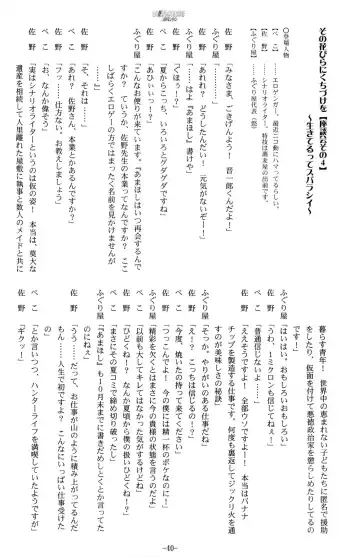 その花びらにくちづけを【座談会その4】
～生きてるってスバラシイ～
〇登場人物
【ぺこ】――エロゲンガー。最近ニコ動にハマってるらしい。
【佐野】――シナリオライター。特技は蕎麦屋の出前です。
【ふぐり屋】――ふぐり屋代表(悠)
佐野「みなさま、ごきげんよう! 晋一郎くんだよ!」
ふぐり屋「あれ? どうしたんだい! 元気がないぞーー!」
ぺこ「……はよ『あまほし』書けや」
佐野「ぐほぅーー?」
ぺこ「夏からこっち、いろいろとグダグダですね」
佐野「あひぃいっーー?」
ふぐり屋「こんなお便りが来てます。『あまほしはいつ再会するんで
すか? ていうか、佐野先生の本業ってなんですか?
しばらくエロゲーの方ではまったく名前を見かけませんが
佐野「そ、それは……」
ぺこ「あれ? 佐野さん、本業とかあるんですか?」
佐野「フッ……仕方ない、お教えしましょう」
ぺこ「お、なんか偉そう」
佐野「実はシナリオライターというのは仮の姿! 本当は、莫大な
遺産を相続して人里離れた屋敷に執事と数人のメイドと共に
暮らす青年! 世界中の恵まれない子どもたちに匿名で援助
をしたり、仮面を付けて悪徳政治家を懲らしめたりしてるの
です!」
ふぐり屋「はいはい、おもしろいおもしろい」
佐野「うわ、1ミクロンも信じてねぇ!」
ぺこ「普通信じないよ……」
佐野「ええそうですよ! 全部ウソですよ! 本当はバナナ
チップを製造する仕事です 何度も裏返してジックリ火を通
すのが美味しさの秘訣」
ふぐり屋「そっか、やりがいのある仕事だね」
佐野「え! こっちは信じるの!?」
ぺこ「今度、焼いたの持って来てください」
佐野「つっこんでよ! 今の僕は精一杯のボケなのに!」
ふぐり屋「精彩を欠くとはまさに今の貴様の状態を言うのだよ」
ぺこ「以前も大してキレてなかった気がするけどね」
佐野「ひどくね!? なんか夏頃から僕の扱いひどくね!?」
ぺこ「まさにその夏コミで締め切り破ったし」
ふぐり屋「『あまほし』も10月末までに書きだめしとくとか言ってた
のにねぇ」
佐野「うう……だって、お仕事が山のように積み上がってたんだ
もん……人生で初ですよ? こんなにいっぱい仕事受けた
ぺこ「とか言いつつ、ハンターライフを満喫していたようですが」
佐野「ギクッ!」
-40-